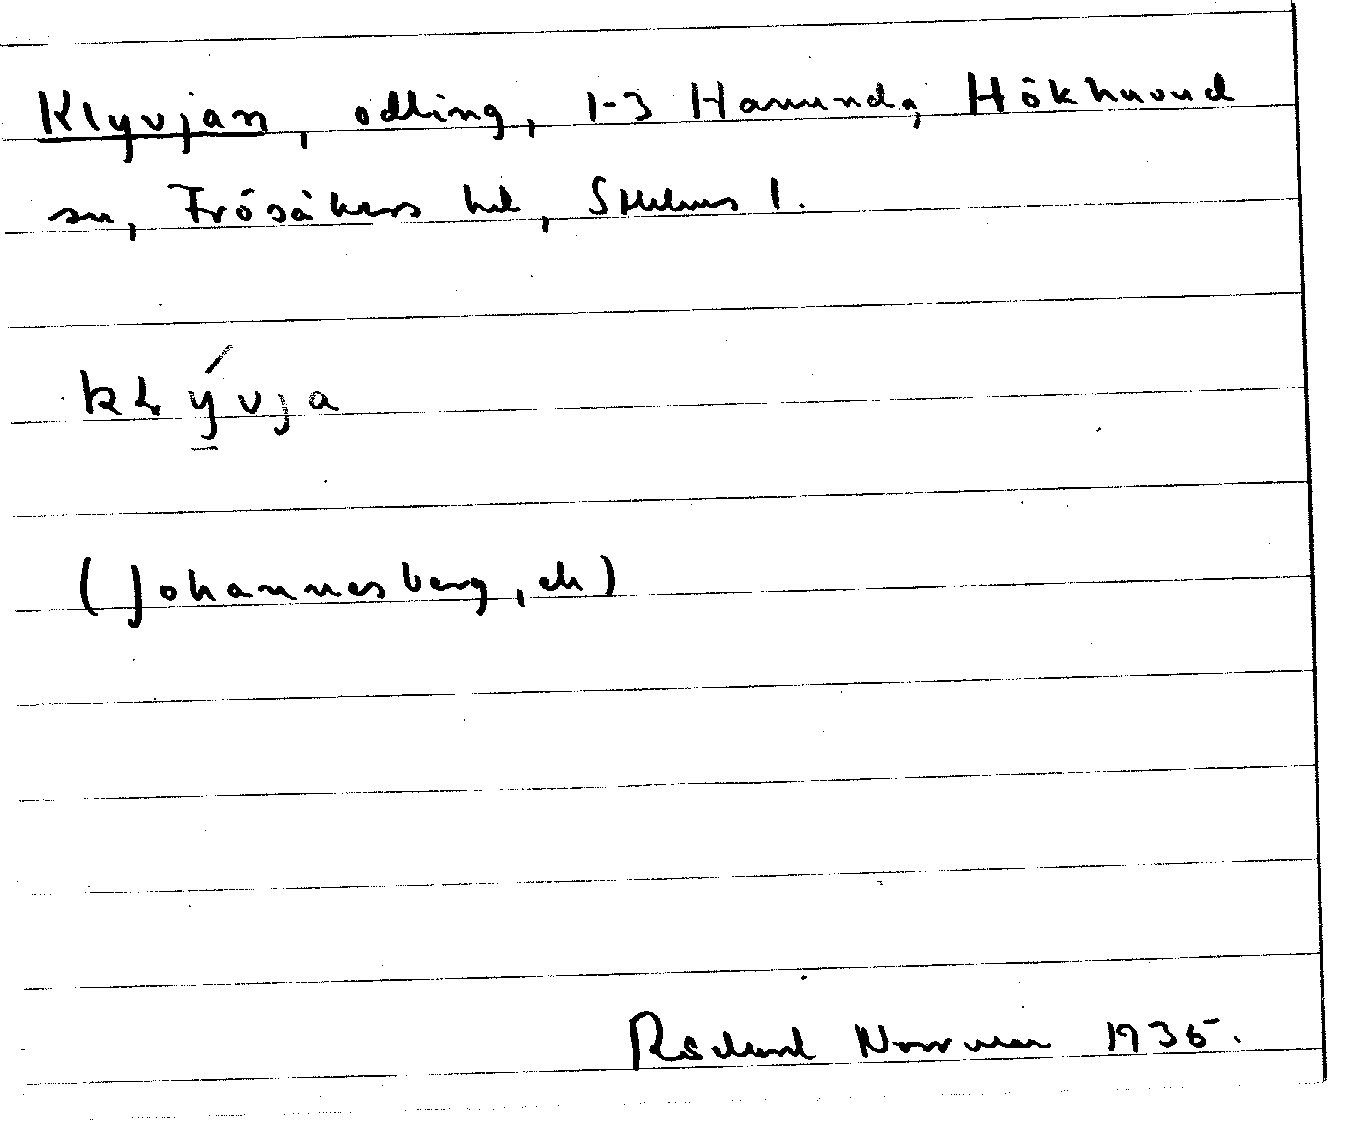 Klyvjan, odling, 1-3 Hamunda, Hökhuvud
sn, Frösåkers hd, Sthlms l.
klývja
(Johannesberg, ek)
Norrman 1935.